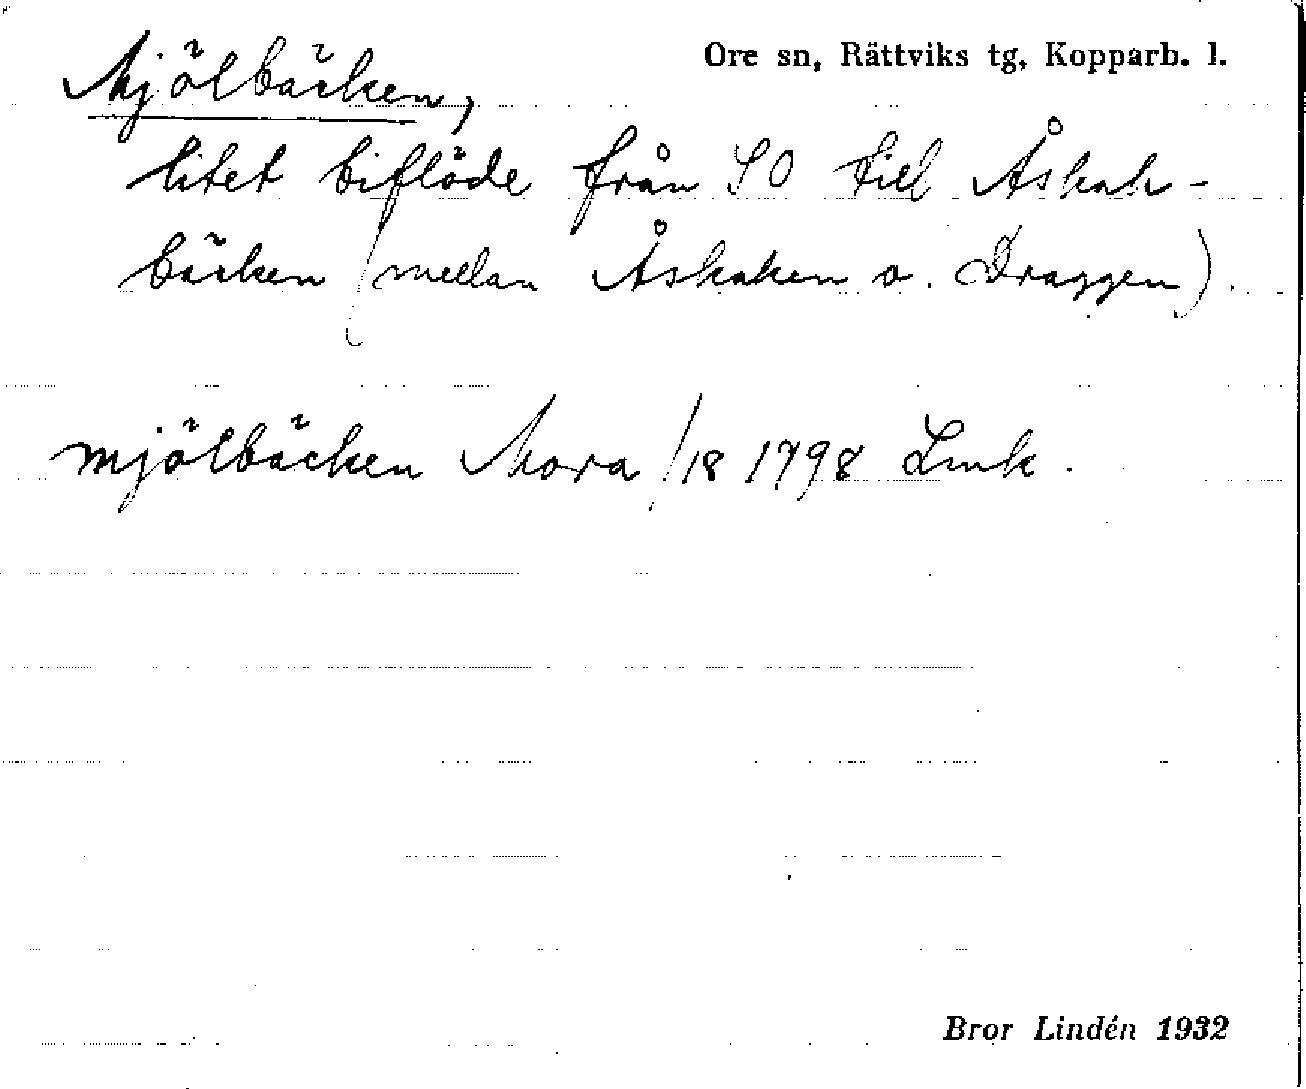 Ore sn, Rättviks tg, Kopparb. l.
Mjölbäcken,
litet biflöde från SO till Åskak-
bäcken (mellan Åskaken o. Draggen).
mjölbäcken Mora /18 1798 Lmk.
Bror Lindén 1932